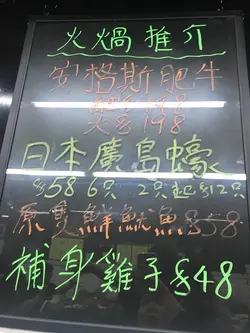 火煱推介
安格斯肥牛
大$198
日本廣島蠔
$58 6只 2只起$12只
原隻鮮魷魚$58
補身雞子$48